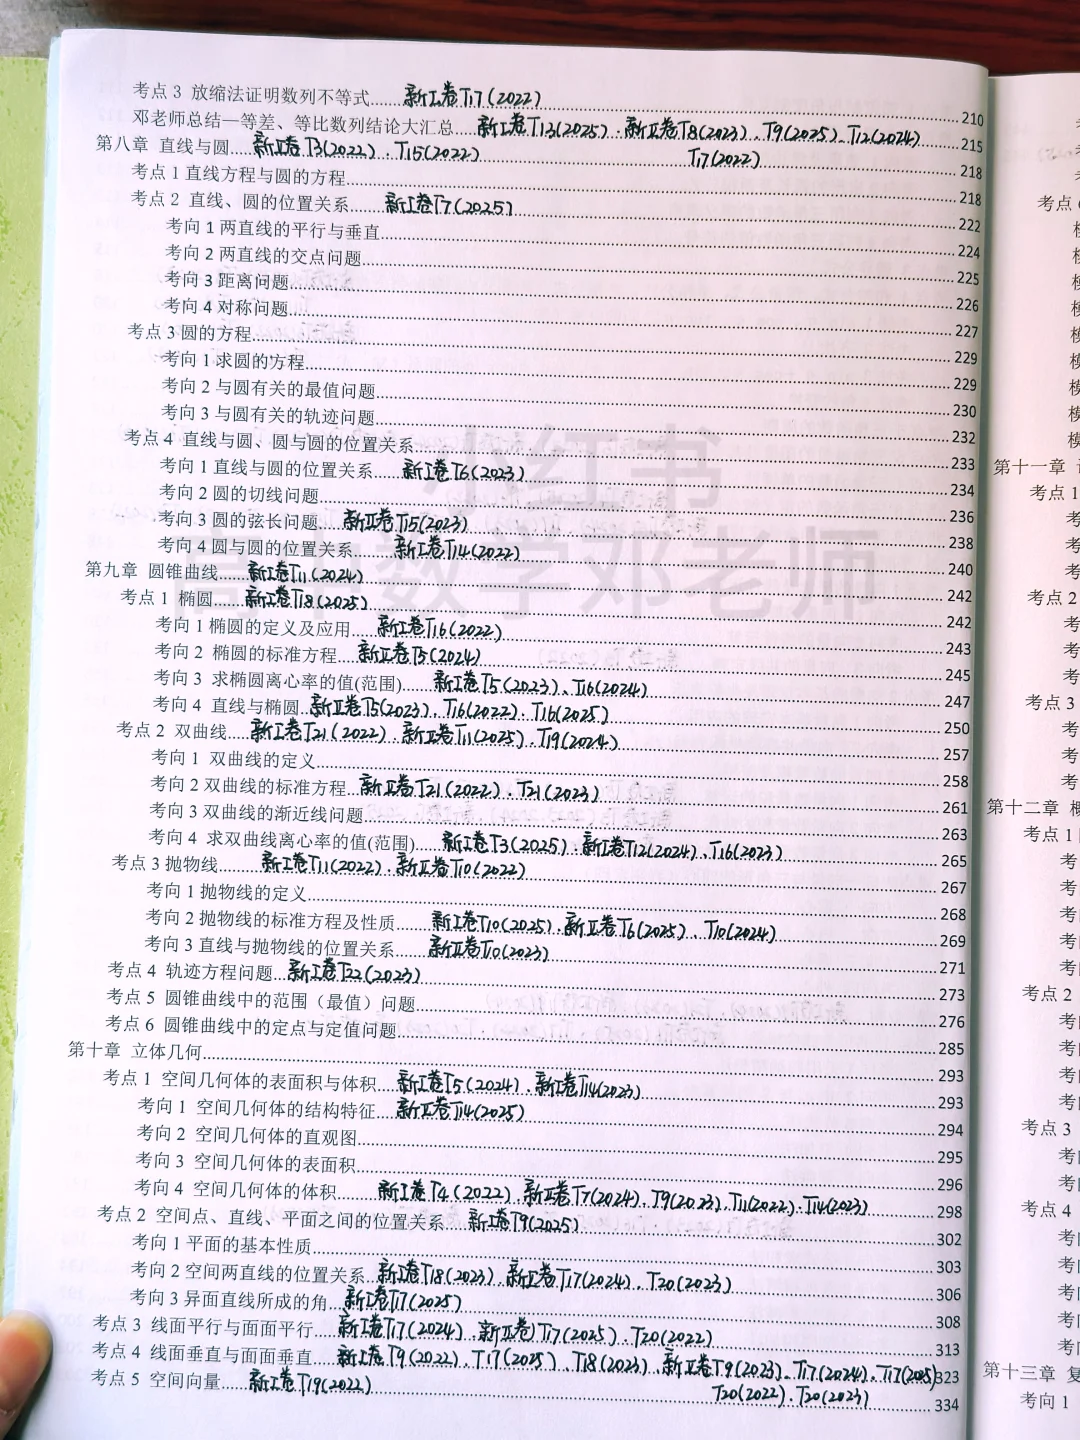 考点 3 放缩法证明数列不等式......新I卷T17(2022)......210
邓老师总结—等差、等比数列结论大汇总......新I卷T13(2025)、新II卷T8(2023)、T9(2025)、T12(2024)......215
T17(2022)
第八章 直线与圆......新II卷T3(2022)、T15(2022)......218
考点 1 直线方程与圆的方程......218
考点 2 直线、圆的位置关系......新I卷T7(2025)......222
考向 1 两直线的平行与垂直......224
考向 2 两直线的交点问题......225
考向 3 距离问题......226
考向 4 对称问题......227
考点 3 圆的方程......229
考向 1 求圆的方程......229
考向 2 与圆有关的最值问题......230
考向 3 与圆有关的轨迹问题......232
考点 4 直线与圆、圆与圆的位置关系......233
考向 1 直线与圆的位置关系......新I卷T6(2023)......234
考向 2 圆的切线问题......236
考向 3 圆的弦长问题......新II卷T15(2023)......238
考向 4 圆与圆的位置关系......新I卷T14(2022)......240
第九章 圆锥曲线......新I卷T11(2024)......242
考点 1 椭圆......新I卷T18(2025)......242
考向 1 椭圆的定义及应用......新I卷T16(2022)......243
考向 2 椭圆的标准方程......新II卷T5(2024)......245
考向 3 求椭圆离心率的值(范围)......新I卷T5(2023)、T16(2024)......247
考向 4 直线与椭圆......新II卷T5(2023)、T16(2022)、T16(2025)......250
考点 2 双曲线......新I卷T21(2022)、新II卷T11(2025)、T19(2024)......257
考向 1 双曲线的定义......258
考向 2 双曲线的标准方程......新II卷T21(2022)、T21(2023)......261
考向 3 双曲线的渐近线问题......263
考向 4 求双曲线离心率的值(范围)......新I卷T3(2025)、新I卷T12(2024)、T16(2023)......265
考点 3 抛物线......新I卷T11(2022)、新II卷T10(2022)......267
考向 1 抛物线的定义......268
考向 2 抛物线的标准方程及性质......新I卷T10(2025)、新II卷T6(2025)、T10(2024)......269
考向 3 直线与抛物线的位置关系......新II卷T10(2023)......271
考点 4 轨迹方程问题......新I卷T22(2023)......273
考点 5 圆锥曲线中的范围（最值）问题......276
考点 6 圆锥曲线中的定点与定值问题......285
第十章 立体几何......293
考点 1 空间几何体的表面积与体积......新I卷T5(2024)、新I卷T14(2023)......293
考向 1 空间几何体的结构特征......新II卷T14(2025)......294
考向 2 空间几何体的直观图......295
考向 3 空间几何体的表面积......296
考向 4 空间几何体的体积......新I卷T4(2022)、新II卷T7(2024)、T9(2023)、T11(2022)、T14(2023)......298
考点 2 空间点、直线、平面之间的位置关系......新I卷T9(2025)......302
考向 1 平面的基本性质......303
考向 2 空间两直线的位置关系......新I卷T18(2023)、新II卷T17(2024)、T20(2023)......306
考向 3 异面直线所成的角......新I卷T17(2025)......308
考点 3 线面平行与面面平行......新I卷T17(2024)、新II卷T17(2025)、T20(2022)......313
考点 4 线面垂直与面面垂直......新I卷T9(2022)、T17(2025)、T18(2023)、新II卷T9(2023)、T17(2024)、T17(2025)323
T20(2022)、T20(2023)
考点 5 空间向量......新I卷T19(2022)......334
小红书
高中数学邓老师
考点
第十一章
考点 1
考点 2
考点 3
第十二章
考点 1
考点 2
考点 3
考点 4
第十三章 复
考向 1